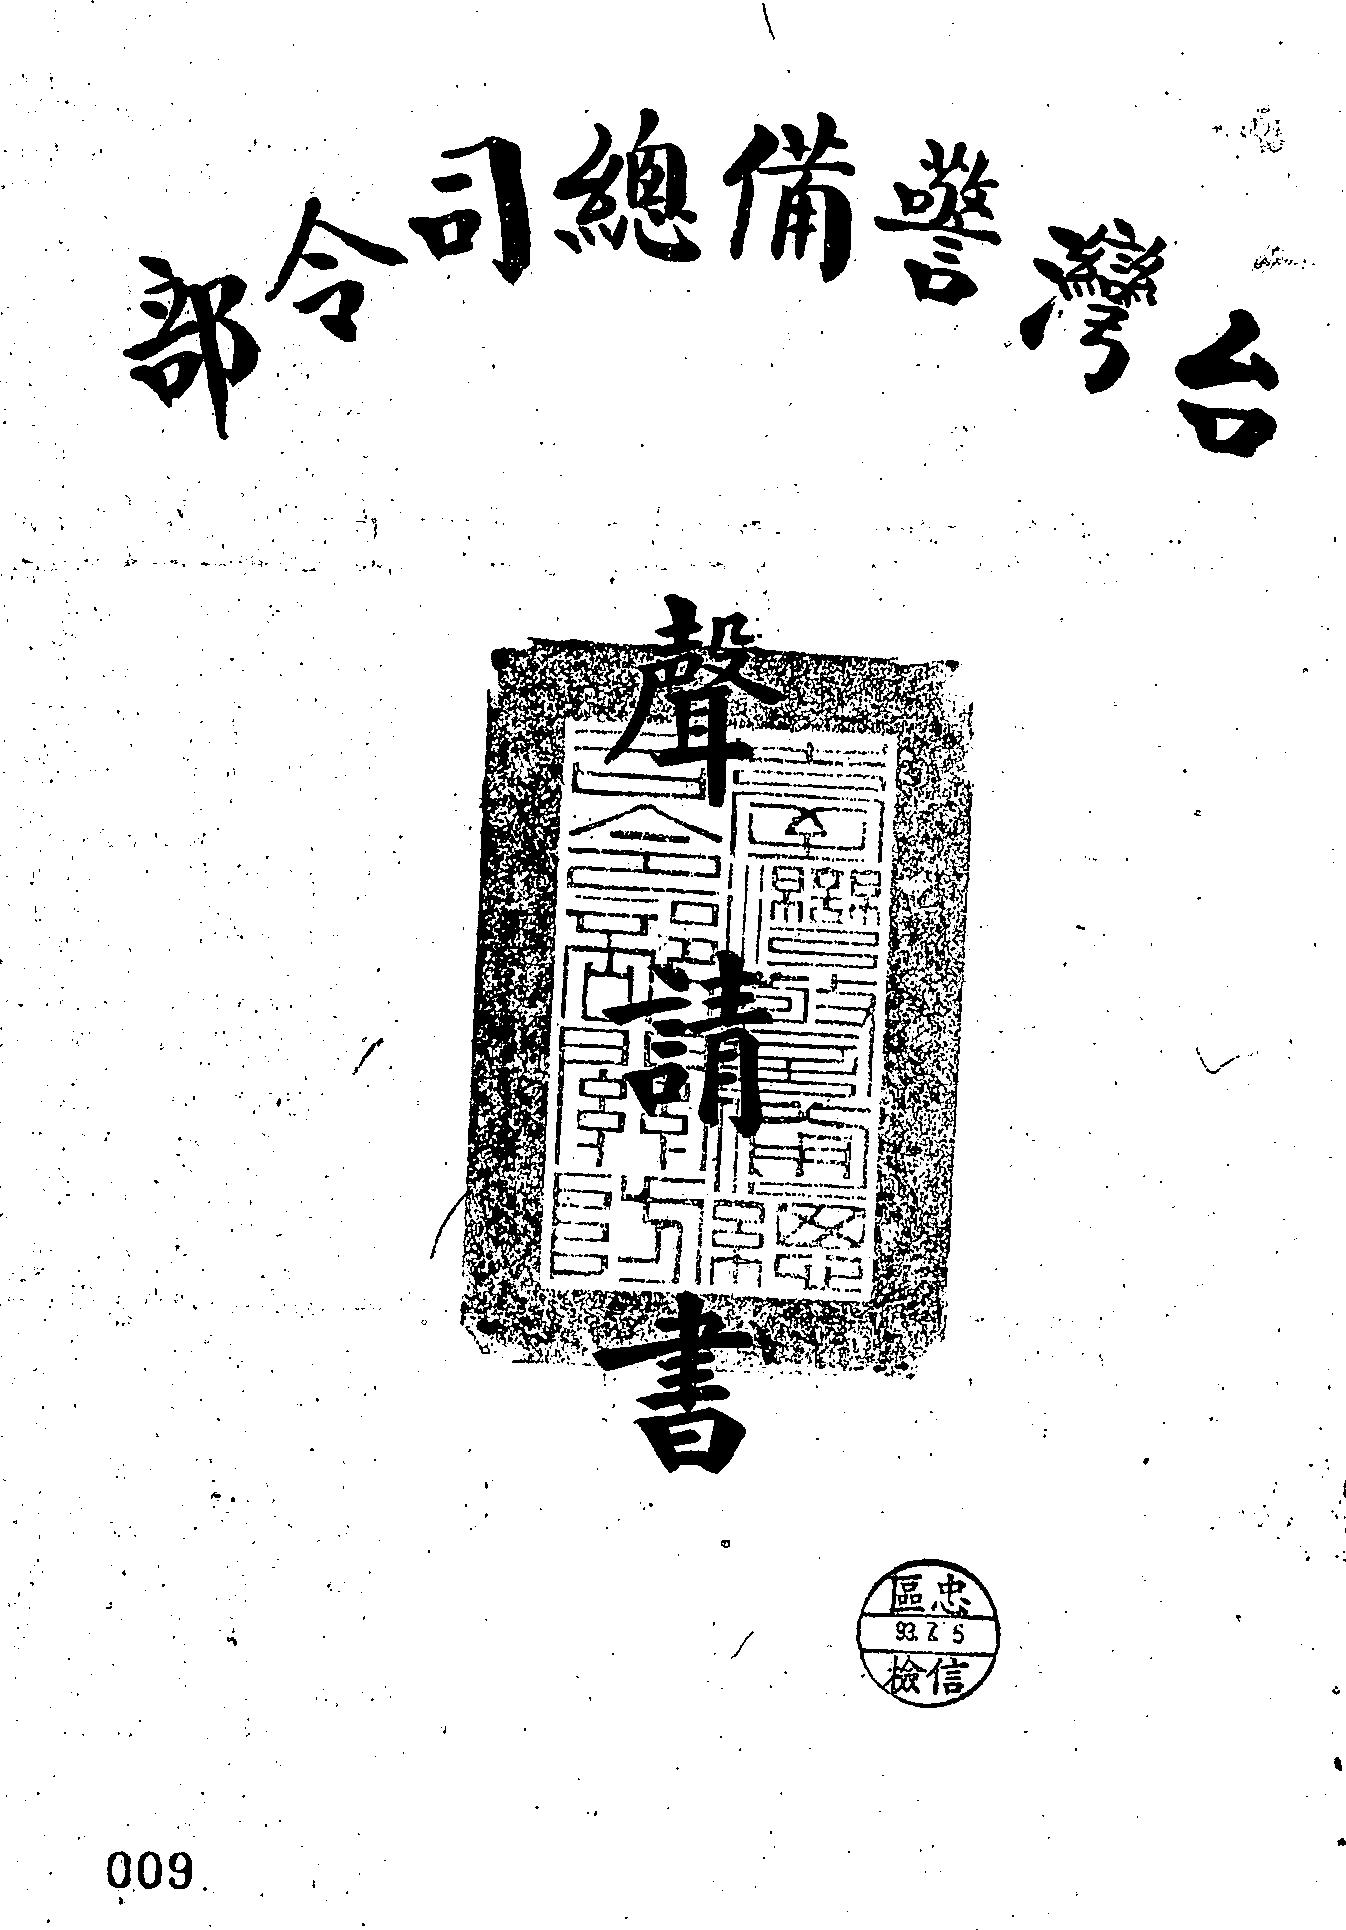 台灣警備總司令部
聲請書
忠區
93. 7. 5
信檢
009